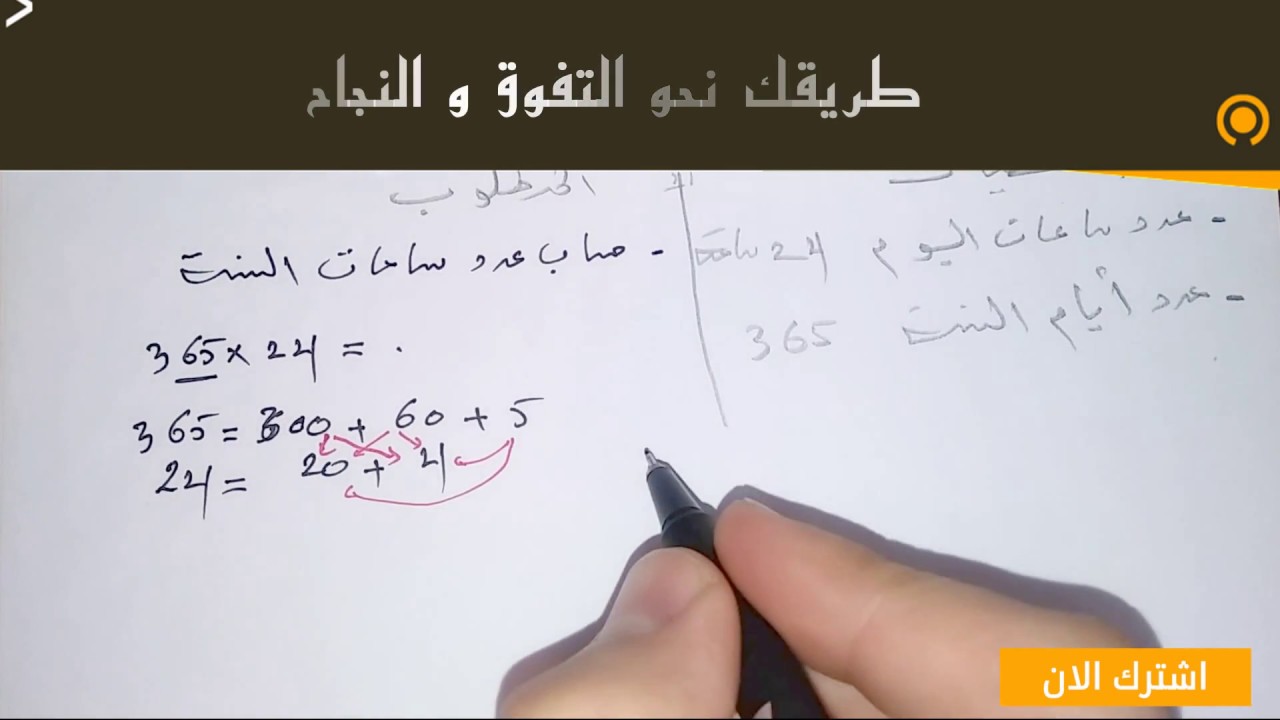 طريقك نحو التفوق و النجاح
المطلوب
- عدد ساعات اليوم 24 ساعة
- عدد أيام السنة 365
- حساب عدد ساعات السنة
365 × 24 = .
365 = 300 + 60 + 5
24 = 20 + 4
اشترك الان